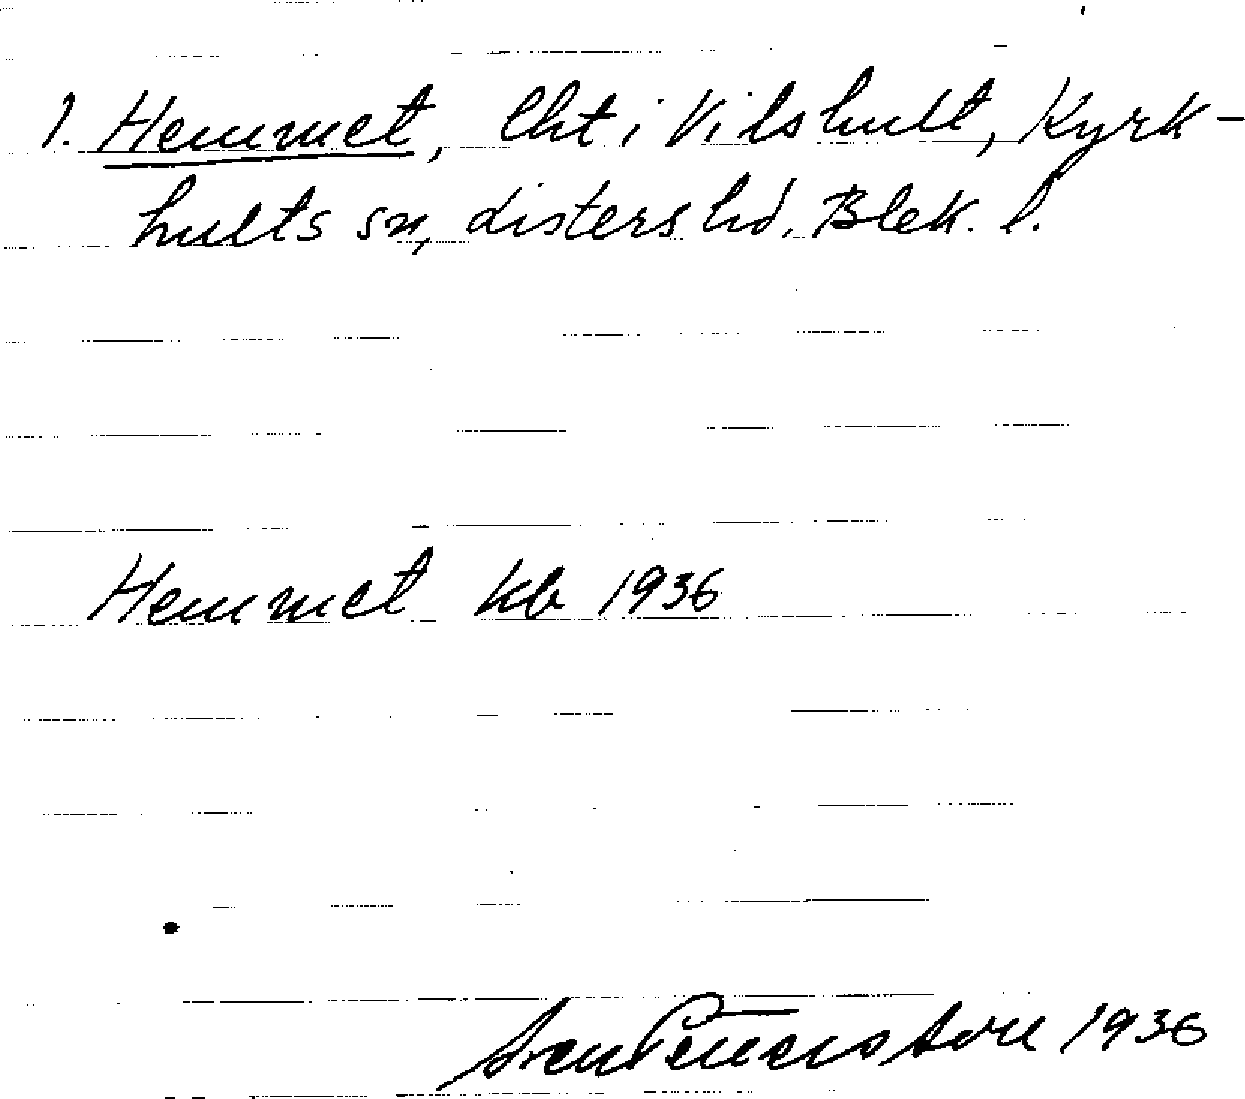 1. Hemmet, lht i Vilshult, Kyrk-
hults sn, Listers hd, Blek. l.
Hemmet kb 1936
1936